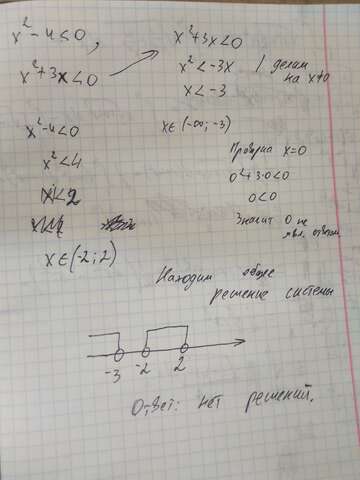 x² - 4 < 0,
x² + 3x < 0
x² - 4 < 0
x² < 4
|x| < 2
x ∈ (-2; 2)
x² + 3x < 0
x² < -3x | делим на x ≠ 0
x < -3
x ∈ (-∞; -3)
Проверка x = 0
0² + 3·0 < 0
0 < 0
Значит 0 не
явл. ответом
Находим общее
решение системы
-3 -2 2
Ответ: нет решений.